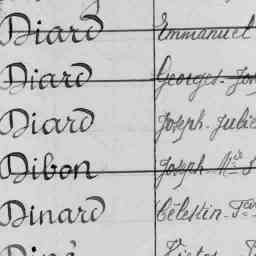 Diard Emmanuel
Diard Georges-Jos
Diard Joseph-Julie
Dibon Joseph Mie
Dinard Célestin-